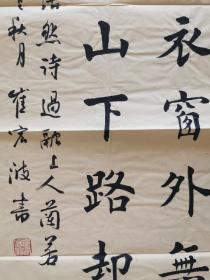 衣窗外無
山下路却
浩然诗過融上人蘭若
秋月崔宏波書